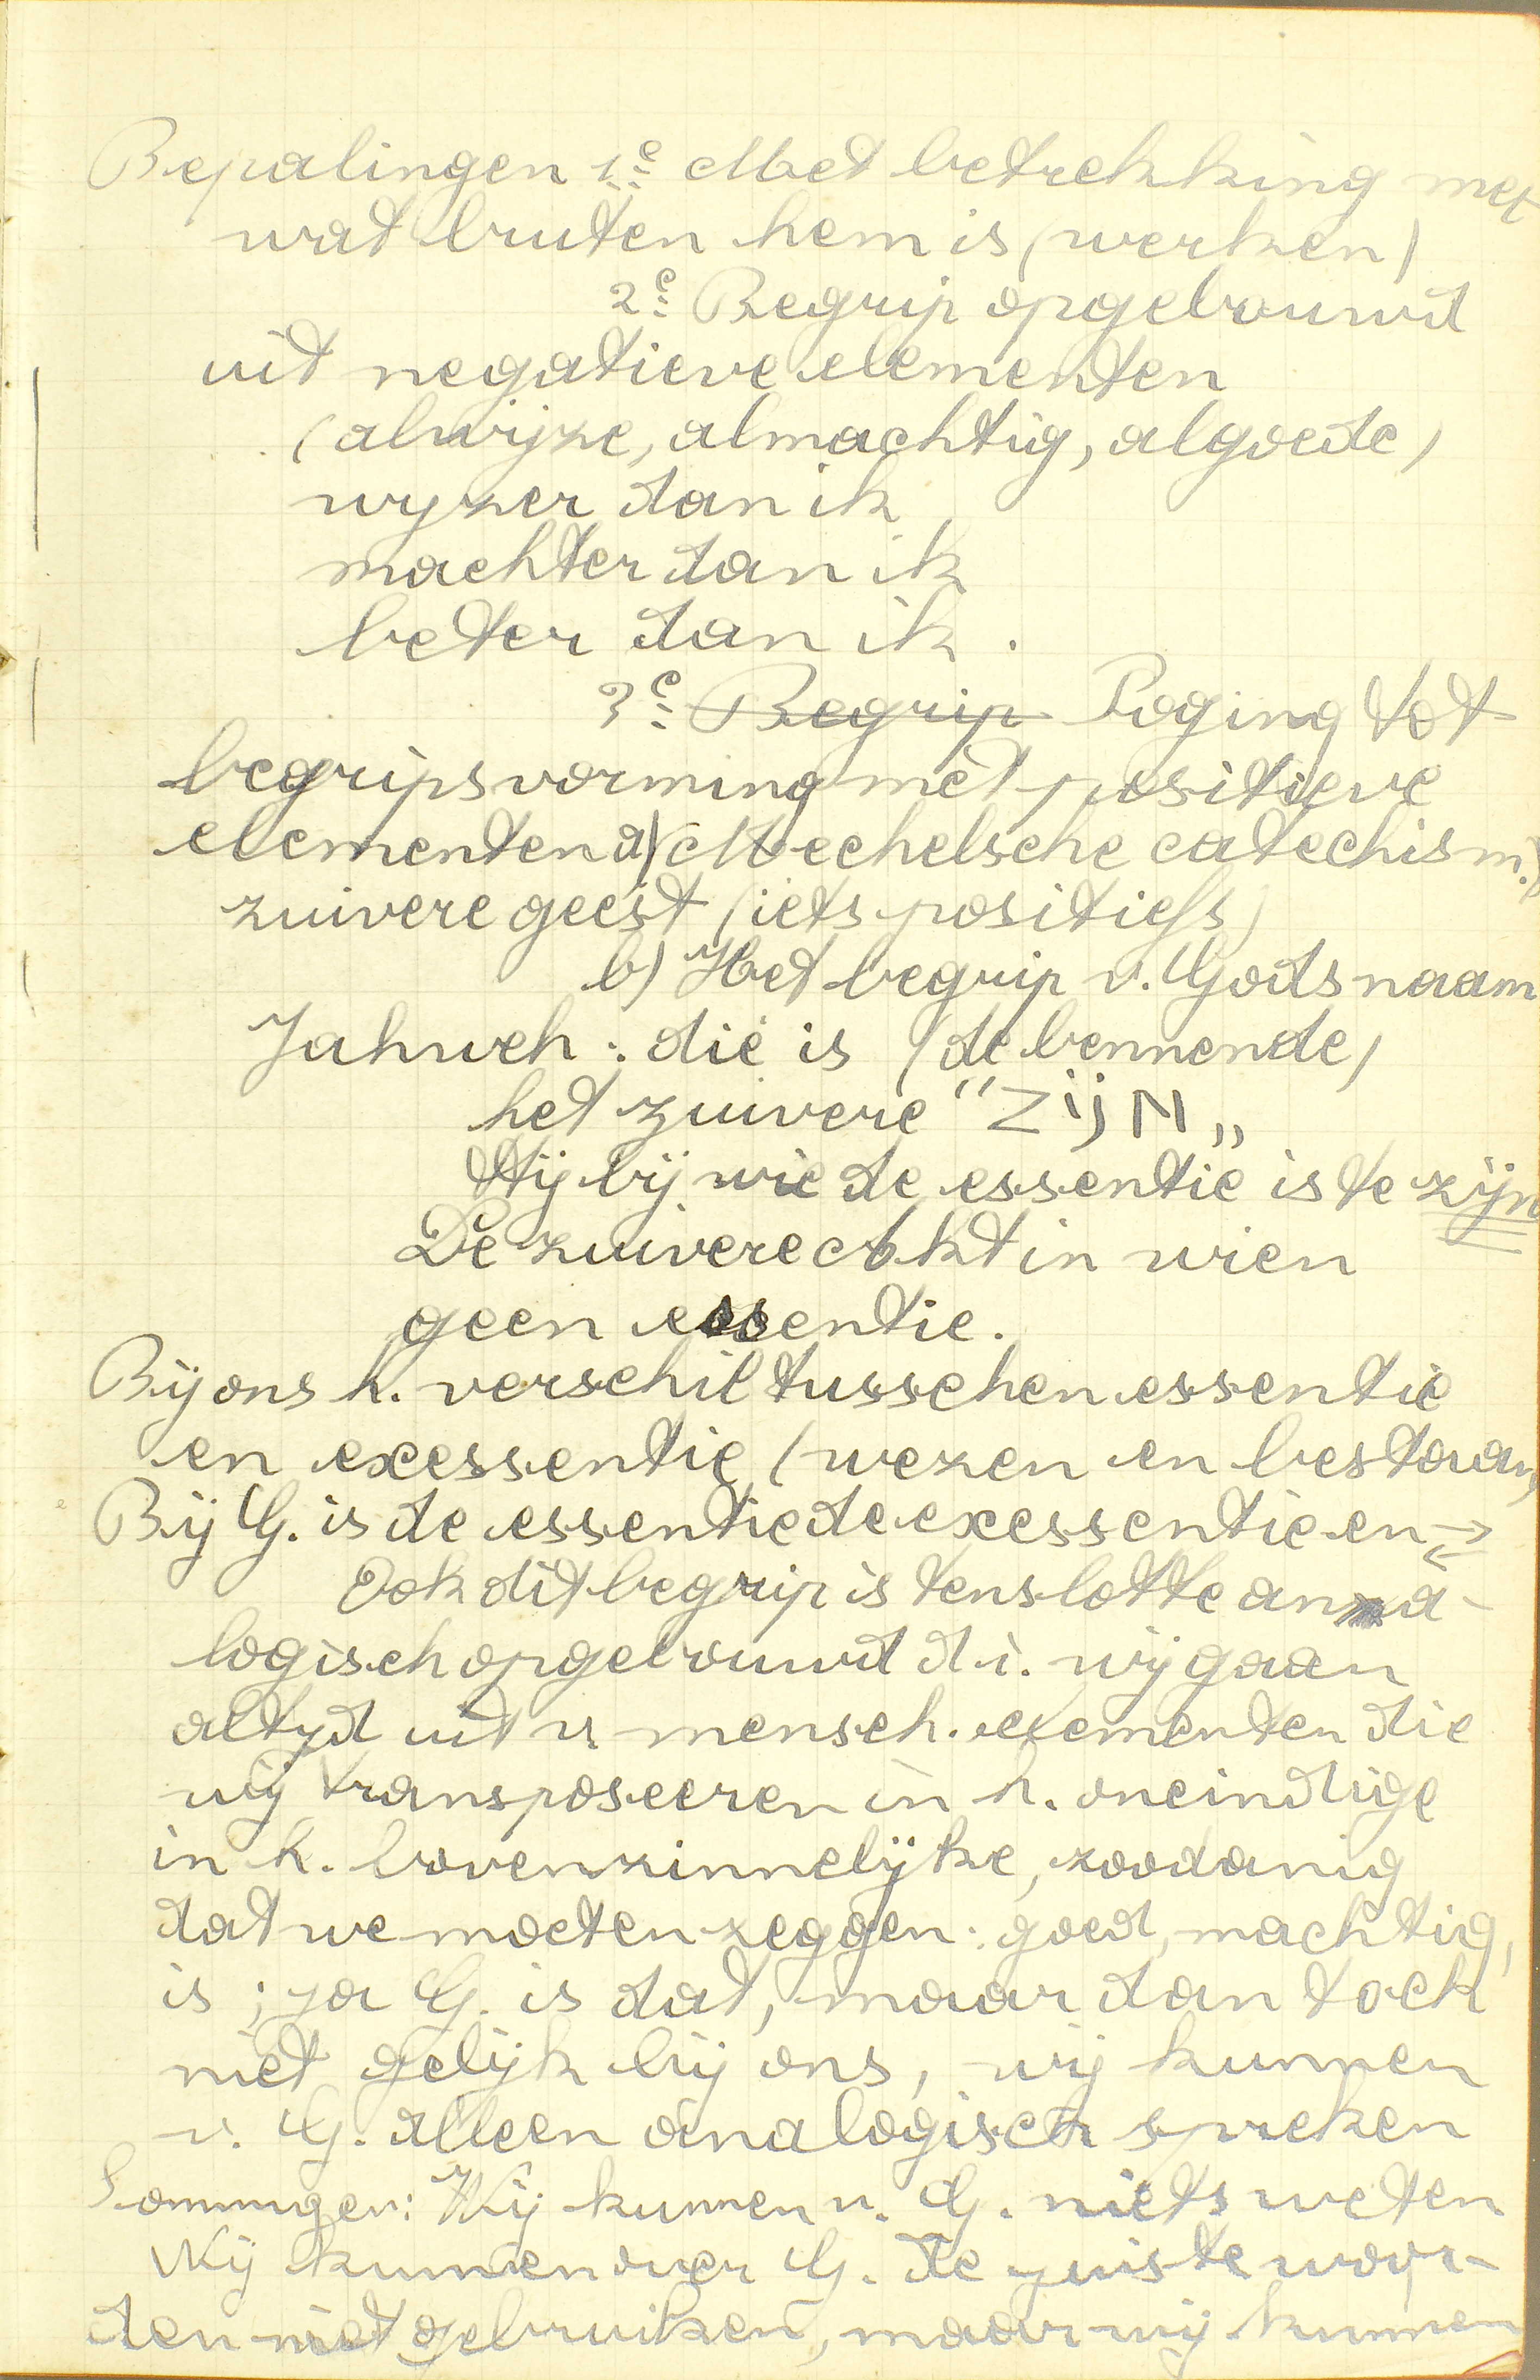 Bepalingen 1e: Met betrekking met
wat buiten hem is (werken)
2e: Begrip opgebouwd
uit negatieve elementen
(alwijze, almachtig, algoede)
wyzer dan ik
machter dan ik
beter dan ik.
3e: Begrip Poging tot
begripsvorming mèt positieve
elementen a) (Mechelsche catechism.)
zuivere geest (iets positiefs)
b) Het begrip v. Gods naam
Jahweh: die is (de bennende)
het zuivere "ZIJN„
Hij bij wie de essentie is te zijn
De zuivere Akt in wien
geen essentie.
Bij ons h. verschil tusschen essentie
en exessentie (wezen en bestaan)
Bij G. is de essentie de exessentie en ⇄
Ook dit begrip is tenslotte ana-
logisch opgebouwd d.i. wij gaan
altyd uit v mensch. elementen die
wij transposeeren in h. oneindige
in h. bovenzinnelijke, zoodanig
dat we moeten zeggen: goed, machtig,
is; ja G. is dat, maar dan toch
niet gelijk bij ons, wij kunnen
v. G. alleen analogisch spreken
Sommigen: Wij kunnen v. G. niets weten
Wij kunnen over G. de juiste woor-
den niet gebruiken, maar wij kunnen